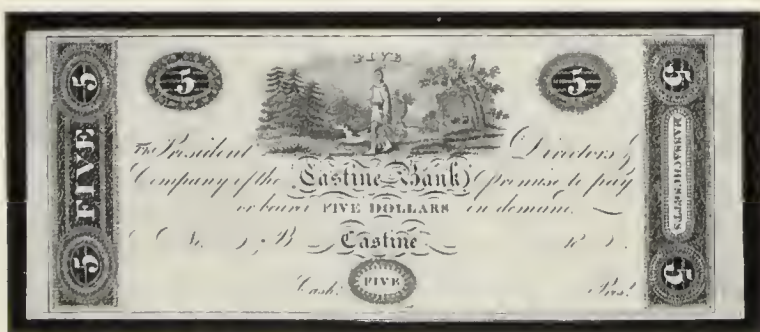 5 FIVE 5
5
FIVE
5
The President Directors &
Company of the Castine Bank promise to pay
or bearer FIVE DOLLARS on demand.
No. B Castine 18
Cash. FIVE Prest.
5 MASSACHUSETTS 5